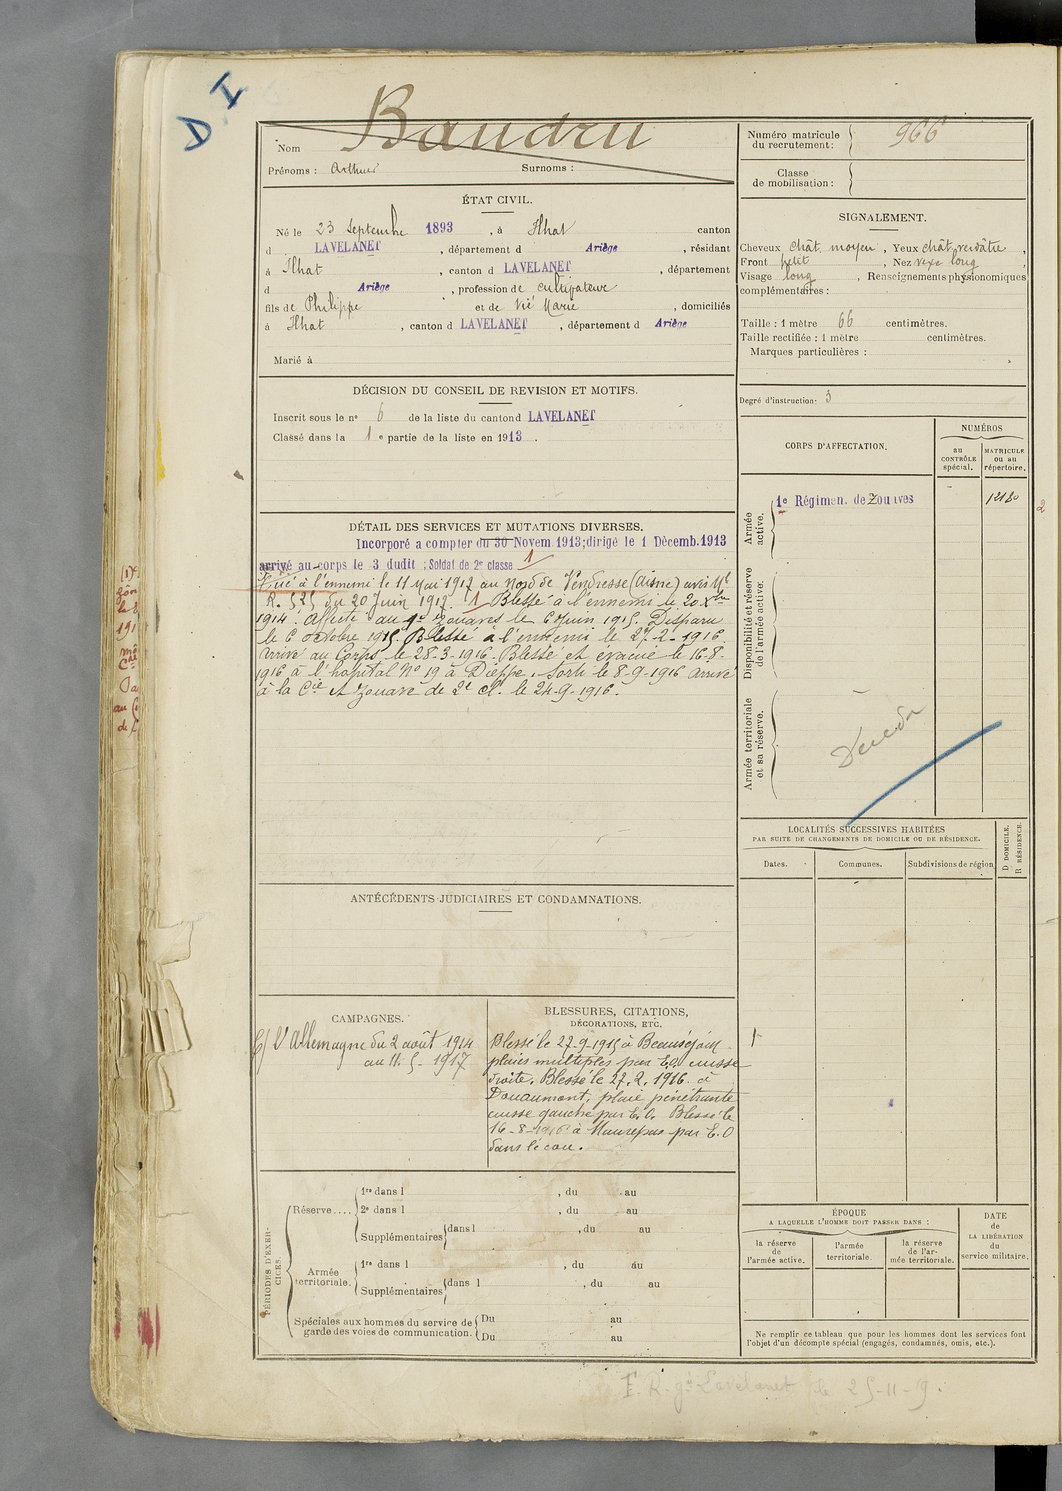 D I
Baudru
Nom
Prénoms : Arthur Surnoms :
Numéro matricule du recrutement : 966
Classe de mobilisation :
ÉTAT CIVIL.
Né le 23 Septembre 1893, à Ilhat canton
d LAVELANET, département d Ariège, résidant
à Ilhat, canton d LAVELANET, département
d Ariège, profession de cultivateur
fils de Philippe et de Vié Marie, domiciliés
à Ilhat, canton d LAVELANET, département d Ariège
Marié à
SIGNALEMENT.
Cheveux chât. moyen, Yeux chât. verdâtre,
Front petit, Nez vexe long,
Visage long, Renseignements physionomiques
complémentaires :
Taille : 1 mètre 66 centimètres.
Taille rectifiée : 1 mètre centimètres.
Marques particulières :
Degré d'instruction : 3
DÉCISION DU CONSEIL DE REVISION ET MOTIFS.
Inscrit sous le nº 6 de la liste du canton d LAVELANET
Classé dans la 1e partie de la liste en 1913.
CORPS D'AFFECTATION.
NUMÉROS
au CONTRÔLE spécial.
MATRICULE ou au répertoire.
Armée active.
1e Régimen. de Zouaves
Disponibilité et réserve de l'armée active.
Armée territoriale et sa réserve.
DÉTAIL DES SERVICES ET MUTATIONS DIVERSES.
Incorporé a compter du 30 Novem. 1913; dirigé le 1 Décemb. 1913
arrivé au corps le 3 dudit ; Soldat de 2e classe 1
Tué à l'ennemi le 11 Mai 1917 au Nord de Vendresse (Aisne) avis Mt
R. 525 du 20 Juin 1917. 1 Blessé à l'ennemi le 20 Xbre
1914. Affecté au 9e Zouaves le 6 Juin 1915. Disparu
le 6 Octobre 1915. Blessé à l'ennemi le 27-2-1916.
Arrivé au Corps le 28-3-1916. Blessé et évacué le 16-8-
1916 à l'hôpital Nº 19 à Dieppe. Sorti le 8-9-1916 Arrivé
à la Cie Zouave de 2e Cl. le 24-9-1916.
LOCALITÉS SUCCESSIVES HABITÉES
PAR SUITE DE CHANGEMENTS DE DOMICILE OU DE RÉSIDENCE.
Dates.
Communes.
Subdivisions de région
D DOMICILE.
R RÉSIDENCE.
ANTÉCÉDENTS JUDICIAIRES ET CONDAMNATIONS.
CAMPAGNES.
C/ L'Allemagne du 2 août 1914
au 11.5-1917
BLESSURES, CITATIONS,
DÉCORATIONS, ETC.
Blessé le 27-9-1915 à Beauséjour
plaies multiples par E.O. cuisse
droite. Blessé le 27.2.1916 à
Douaumont, plaie pénétrante
cuisse gauche par E.O. Blessé le
16-8-1916 à Maurepas par E.O
dans le cou.
PÉRIODES D'EXERCICES.
Réserve....
1re dans l , du au
2e dans l , du au
Supplémentaires dans l , du au
Armée territoriale.
1re dans l , du au
Supplémentaires dans l , du au
Spéciales aux hommes du service de
garde des voies de communication.
Du au
Du au
ÉPOQUE
A LAQUELLE L'HOMME DOIT PASSER DANS :
la réserve de l'armée active.
l'armée territoriale.
la réserve de l'armée territoriale.
DATE
de
LA LIBÉRATION
du
service militaire.
Ne remplir ce tableau que pour les hommes dont les services font
l'objet d'un décompte spécial (engagés, condamnés, omis, etc.).
Lavelanet le 25-11-9.